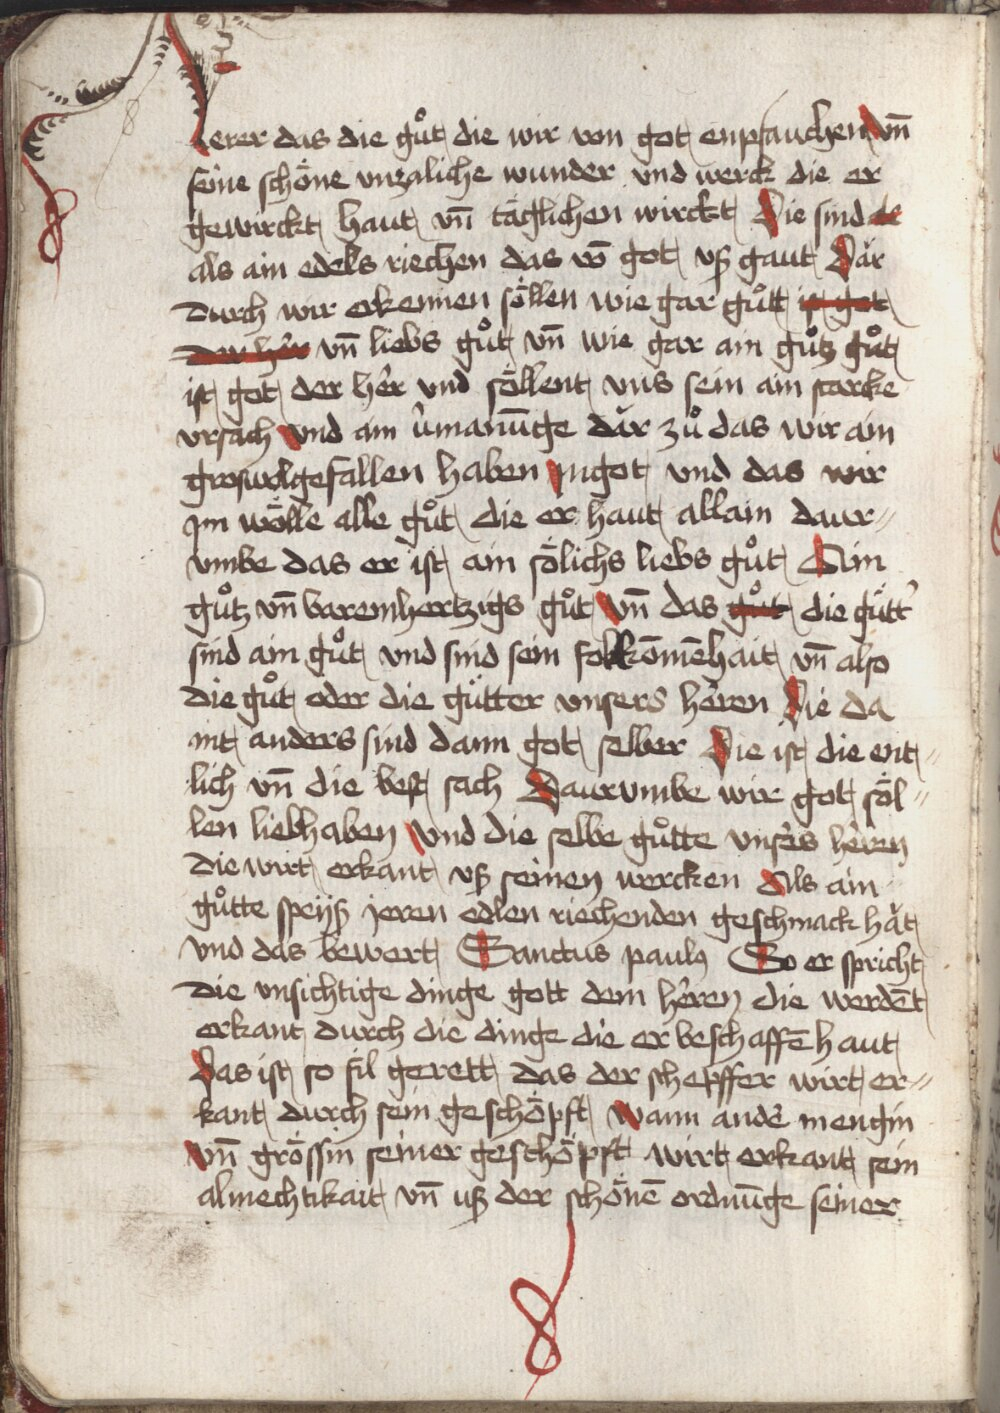 lerer das die gůt die wir von got enpfauchen vn̄
seine schöne vnzaliche wunder vnd werck die er
gewirckt haut vn̄ täglichen wirckt Die sind
als ain edels riechen das vō got vß gaut Där
durch wir erkennen söllen wie gar gůtt ist got
der her vn̄ liebs gůt vn̄ wie gar ain gůtz gůt
ist got der her vnd söllent vns sein ain starcke
vrsach vnd ain v̈rmanūge där zů das wir ain
groswolgefallen haben Jngot vnd das wir
Jm wölle alle gůt die er haut allain daur⸗
vmbe das er ist ain sölichs liebs gůt Ain
gůtz vn̄ baremhertzigs gůt vn̄ das gůt die gütt'
sind ain gůt vnd sind sein folkōmēhait vn̄ also
die gůt oder die gütter vnsers heren Die da
nit anders sind dann got selber Die ist die ent⸗
lich vn̄ die best sach Daurvmbe wir got söl⸗
len liebhaben vnd die selbe gůtte vnsers heren
die wirt erkant vß seinen wercken Als ain
gůtte speyß jeren edlen riechenden geschmack hät
vnd das bewert Sanctus paulꝰ So er spricht
die vnsichtige dinge gott dem heren die werdēt
erkant durch die dinge die er beschaffē haut
Das ist so fil gerett das der schepffer wirt er⸗
kant durch sein geschöpft wann an de mengin
vn̄ grössin seiner geschöpft wirt erkant sein
almechtikait vn̄ uß der schönē ordnūge seiner